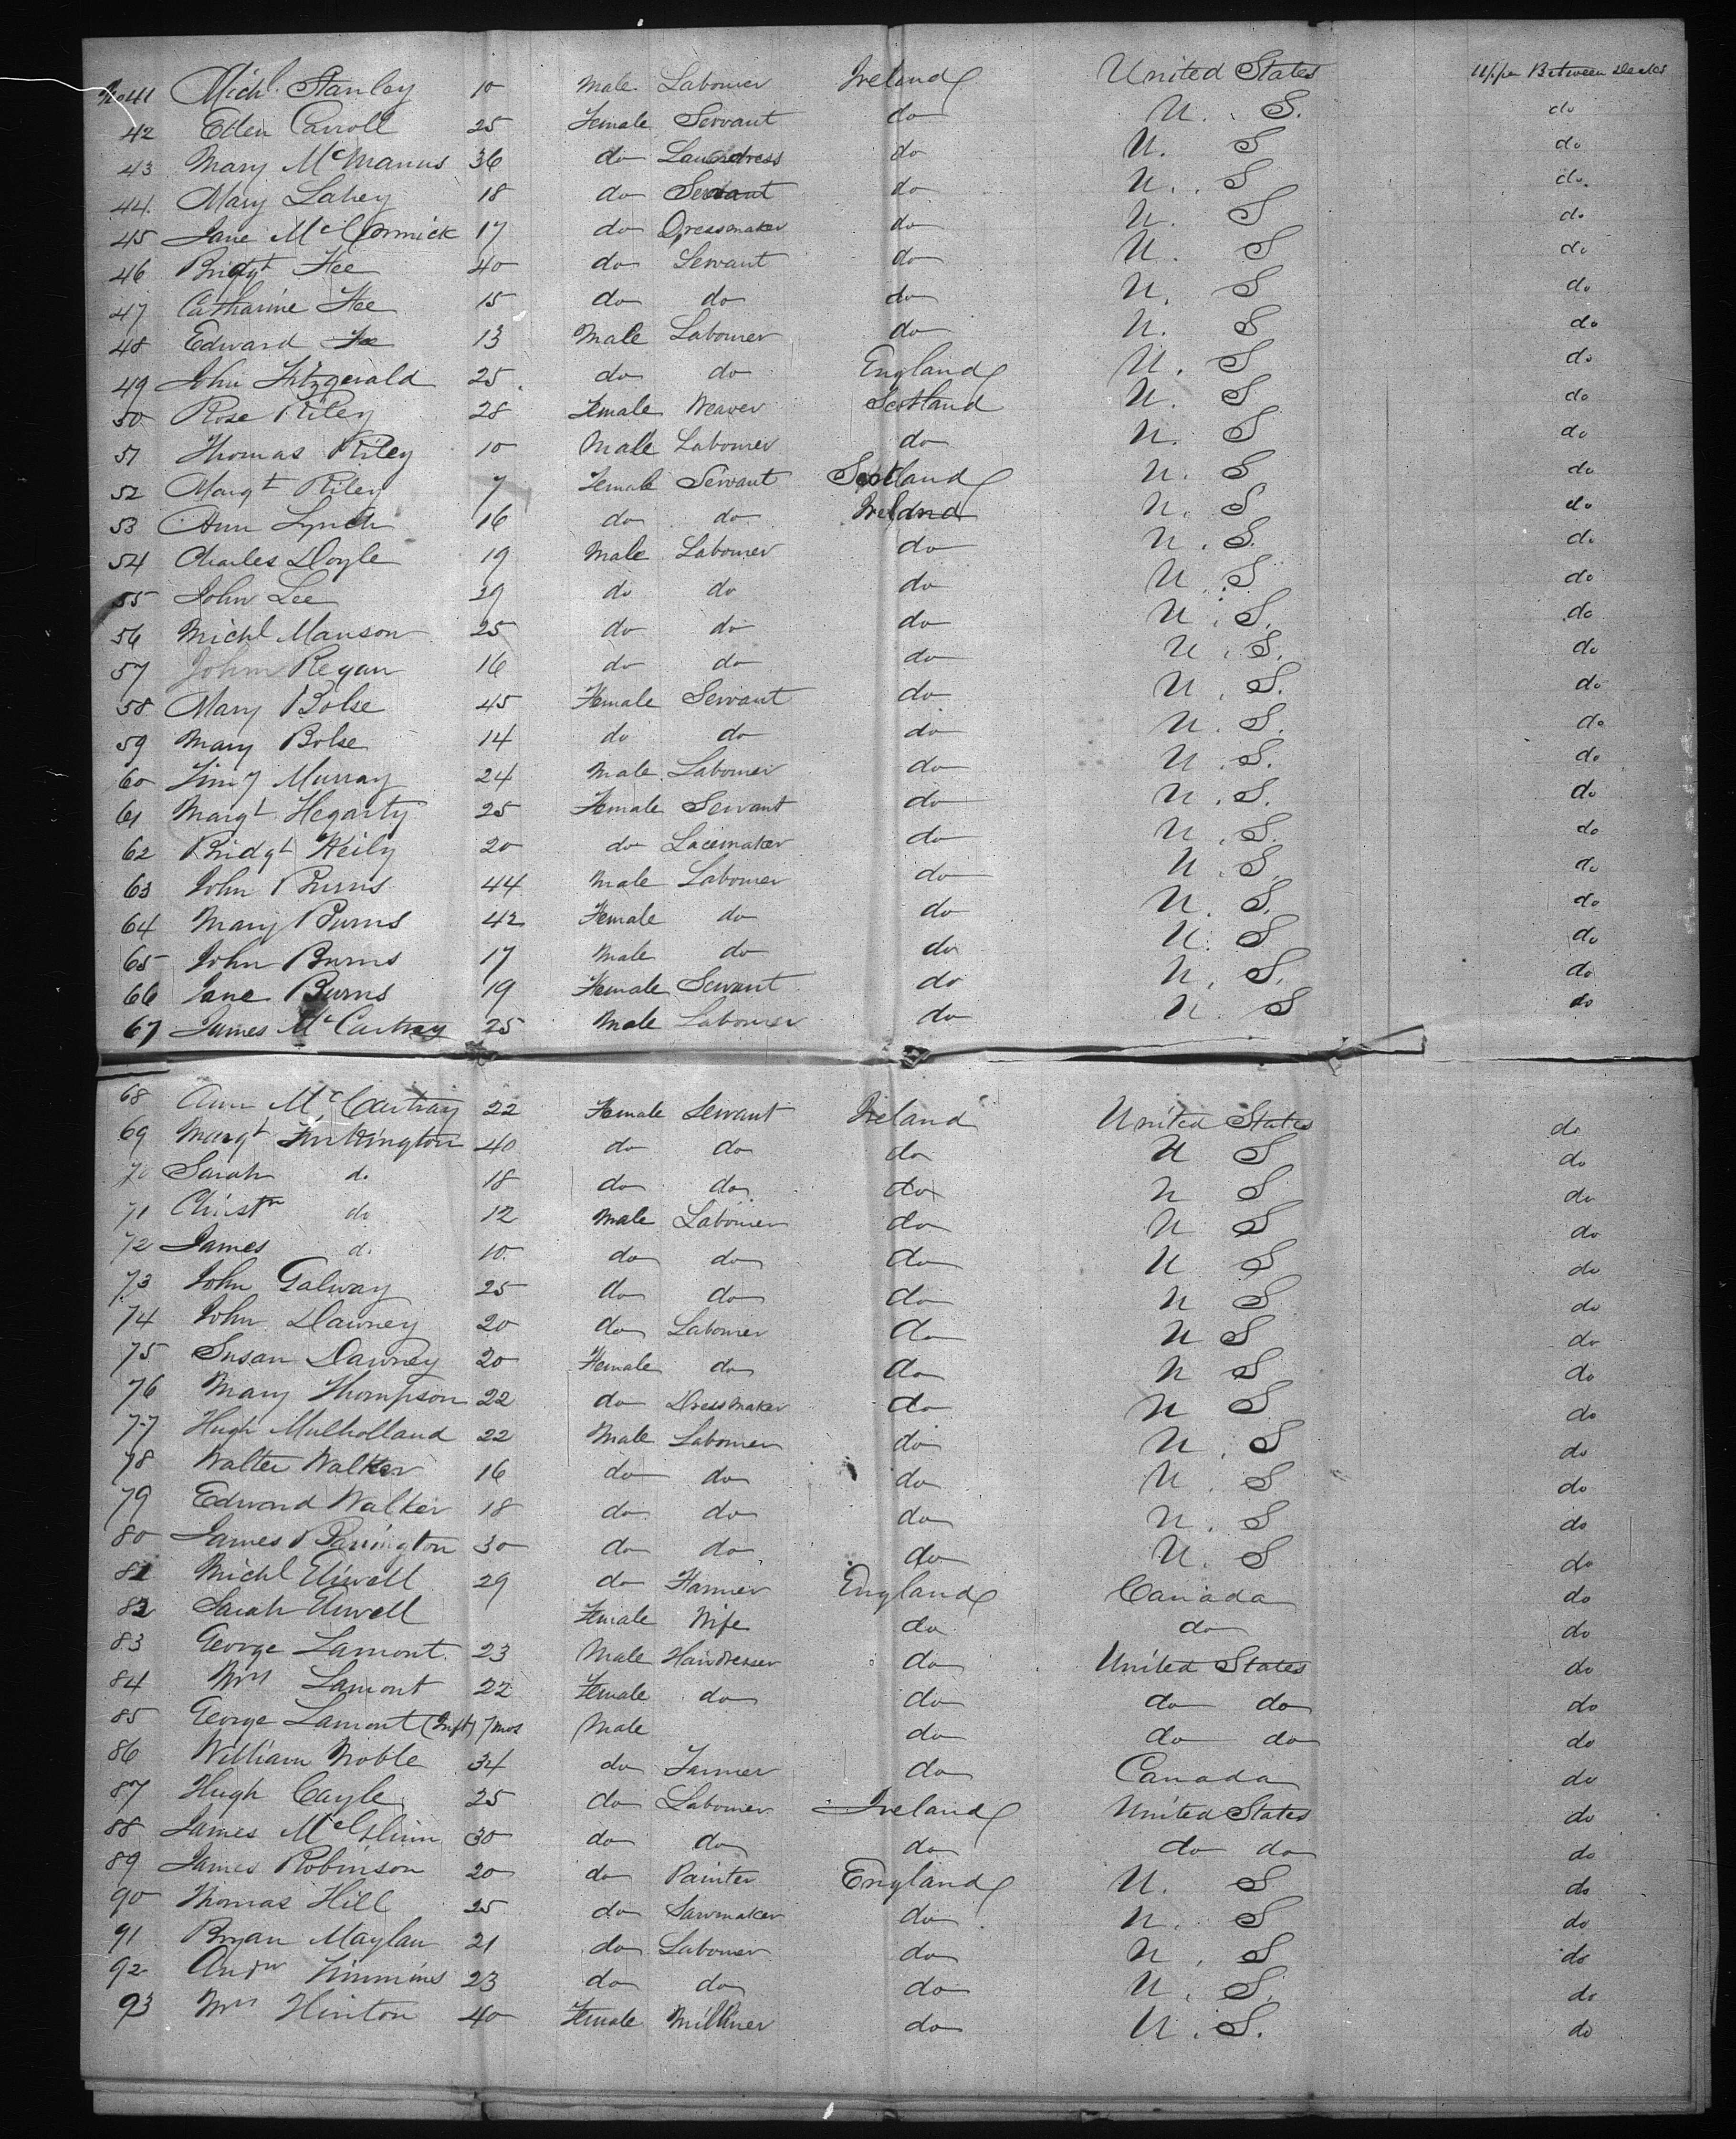 No 41 Michl. Stanley 10 Male Labourer Ireland United States Upper Between Decks
42 Ellen Carroll 25 Female Servant do U. S. do
43 Mary McManus 36 do Laundress do U. S do
44 Mary Lahey 18 do Servant do U. S do
45 Jane McCormick 17 do Dressmaker do U. S do
46 Bridgt Fee 40 do Servant do U. S do
47 Catharine Fee 15 do do do U. S do
48 Edward Fee 13 Male Labourer do U. S do
49 John Fitzgerald 25 do do England U. S do
50 Rose Riley 28 Female Weaver Scotland U. S do
51 Thomas Riley 10 Male Labourer do U. S do
52 Margt Riley 7 Female Servant Scotland U. S do
53 Ann Lynch 16 do do Ireland U. S do
54 Charles Doyle 19 Male Labourer do U. S. do
55 John Lee 19 do do do U. S do
56 Michl Manson 25 do do do U. S. do
57 John Regan 16 do do do U. S. do
58 Mary Bolse 45 Female Servant do U. S. do
59 Mary Bolse 14 do do do U. S. do
60 Timy Murray 24 Male Labourer do U. S. do
61 Margt Hegarty 25 Female Servant do U. S. do
62 Bridgt Keily 20 do Lacemaker do U. S. do
63 John Burns 44 Male Labourer do U. S. do
64 Mary Burns 42 Female do do U. S. do
65 John Burns 17 Male do do U. S do
66 Jane Burns 19 Female Servant do U. S. do
67 James McCartney 25 Male Labourer do U. S do
68 Ann McCartray 22 Female Servant Ireland United States do
69 Margt 40 do do do U S do
70 Sarah do 18 do do do U S do
71 Christr do 12 Male Labourer do U S do
72 James do 10 do do do U S do
73 John Galway 25 do do do U S do
74 John Dawney 20 do Labourer do U S do
75 Susan Dawney 20 Female do do U S do
76 Mary Thompson 22 do Dressmaker do U S do
77 Hugh Mulholland 22 Male Labourer do U. S do
78 Walter Walker 16 do do do U. S do
79 Edward Walker 18 do do do U. S do
80 James Barrington 30 do do do U. S do
81 Michl Elwell 29 do Farmer England Canada do
82 Sarah Elwell Female Wife do do do
83 George Lamont 23 Male Hairdresser do United States do
84 Mrs Lamont 22 Female do do do do do
85 George Lamont (Inft) 7 mos Male do do do do
86 William Noble 34 do Farmer do Canada do
87 Hugh Cayle 25 do Labourer Ireland United States do
88 James McGlinn 30 do do do do do do
89 James Robinson 20 do Painter England U. S do
90 Thomas Hill 25 do Sawmaker do U. S do
91 Bryan Maylan 21 do Labourer do U. S do
92 Andw Timmins 23 do do do U. S. do
93 Mrs Hinton 40 Female Milliner do U. S. do